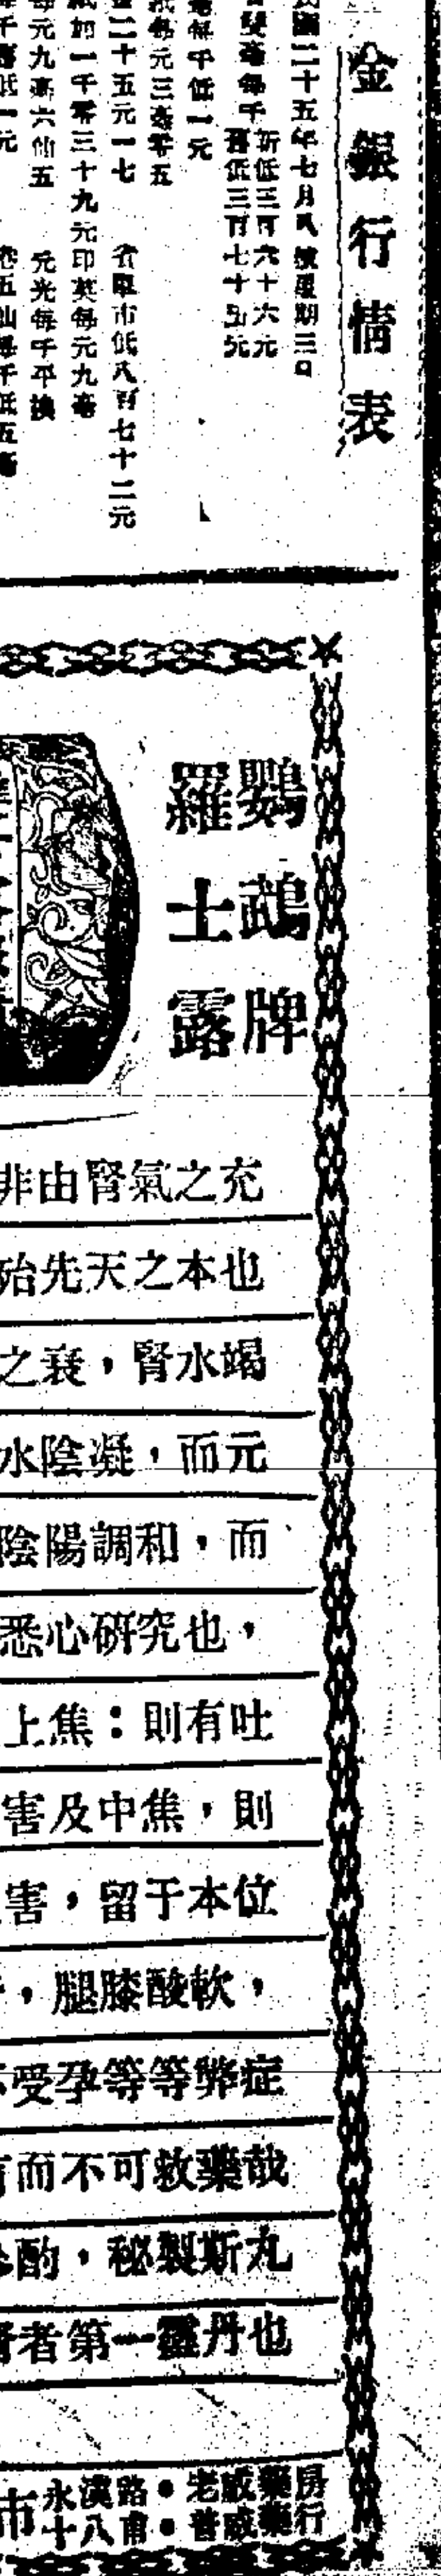 金銀行情表
二十五年七月八號星期三日
新低三百六十六元
舊低三百七十五元
雙毫每千
毫每千低一元
紙每元三毫零五
二十五元一七
省單市低八百七十二元
紙加一千零三十九元印英每元九毫
每元九毫六仙五
元光每千平換
千舊低一元
券五仙每千低五毫
鸚鵡牌
羅士露
非由腎氣之充
殆先天之本也
之衰，腎水竭
水陰凝，而元
陰陽調和，而
悉心研究也，
上焦：則有吐
害及中焦，則
害，留于本位
，腿膝酸軟，
受孕等等弊症
而不可救藥哉
酌，秘製斯丸
者第一靈丹也
市
永漢路•老威藥房
十八甫•普威藥行